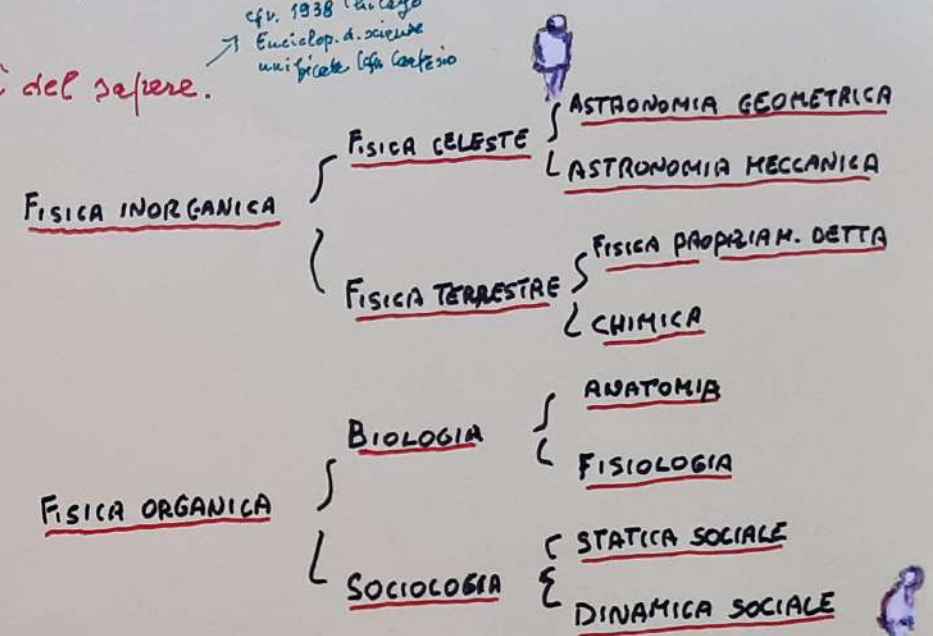 cfr. 1938 Chicago
Enciclop. d. scienze
unificate (cfr Cartesio
del sapere.
FISICA INORGANICA
FISICA CELESTE
ASTRONOMIA GEOMETRICA
ASTRONOMIA MECCANICA
FISICA TERRESTRE
FISICA PROPRIAM. DETTA
CHIMICA
FISICA ORGANICA
BIOLOGIA
ANATOMIA
FISIOLOGIA
SOCIOLOGIA
STATICA SOCIALE
DINAMICA SOCIALE